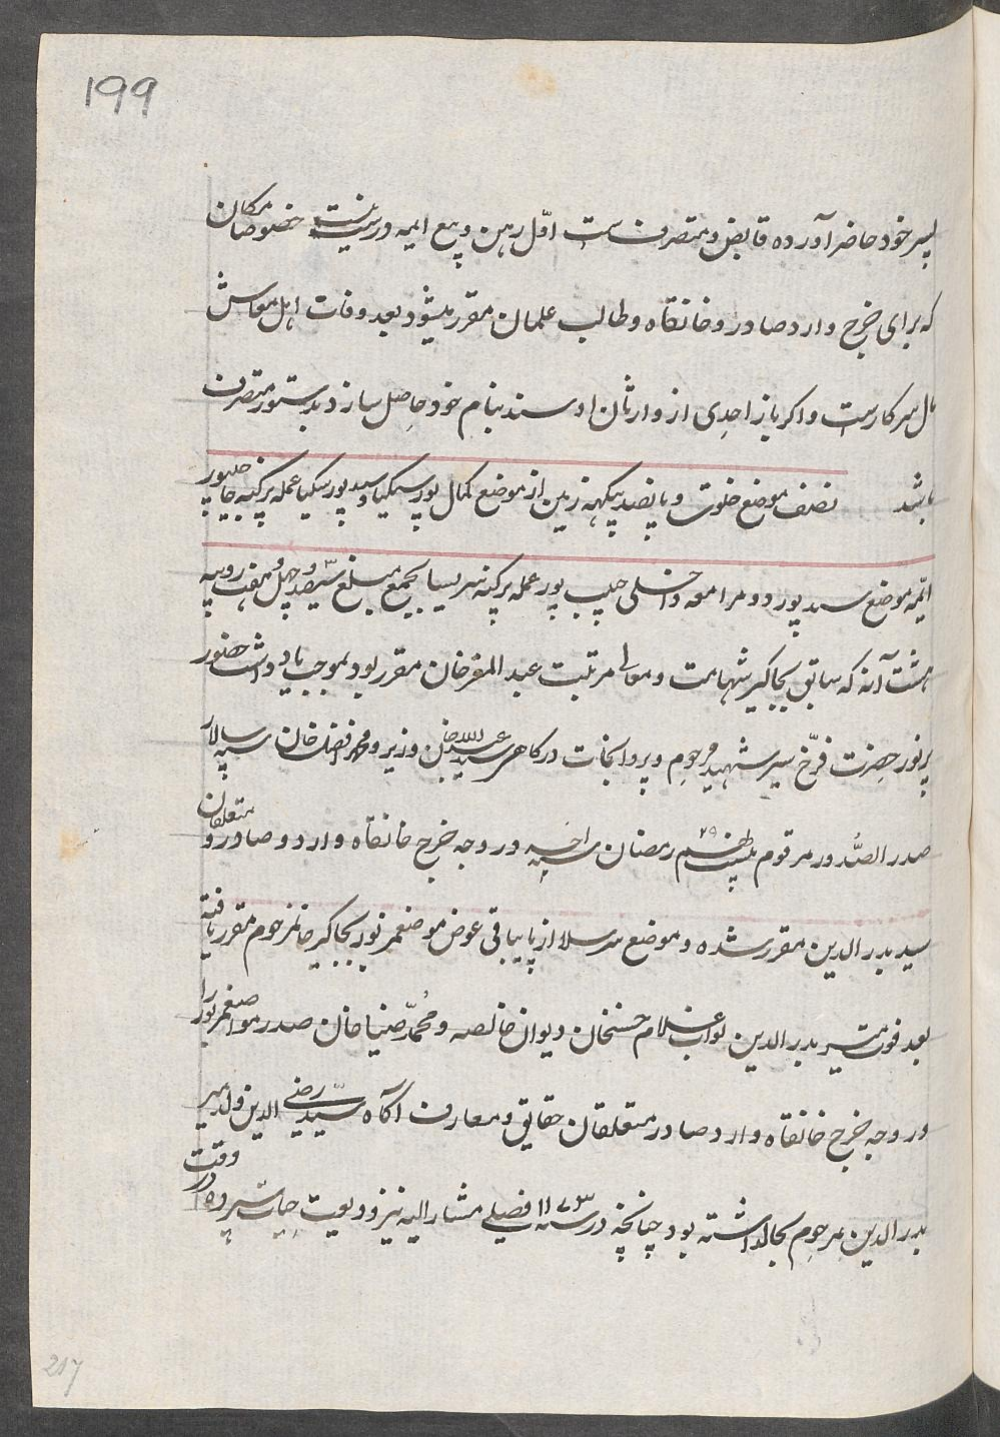 ۱۹۹
پسر خود حاضر آورده قابض و متصرفست اوّل رهن و بیع ایمه درست نیست خصوصا مکان
که برای خرج وارد صادر و خانقاه و طالب علمان مقرر میشود بعد وفات اهل معاش
مال سرکارست و اکر باز احدی از وارثان او سند بنام خود حاصل سازد بدستور متصرف
باشد نصف موضع خلوت و پانصد بیکهه زمین از موضع کمال پور سیکیا و سید پور سیکیا عمله پرکنه حاجیپور
ایمّه موضع سید پور دومرا معه داخلی حبیب پور عمله پرکنه سریسیا بجمع مبلغ سیّصد و چهل و هفت روپیه
هشت آنه که سابق بجاکیر شهامت و معالی مرتبت عبد المغرخان مقرر بود بموجب یادداشت حضور
پرنور حضرت فرّخ سیر شهید مرحوم و پروانجات درکاهی سید عبد الله خان وزیر و محمد افضل خان سپه سالار
صدر الصّدور مرقوم بیست و نهم ۲۹ رمضان سنه احد در وجه خرج خانقاه وارد و صادر و متعلقان
سید بدر الدین مقرر شده و موضع سرسلا از پایباقی عوض موضع مرنور بجاکیر خانمرحوم مقرر یافته
بعد فوت میر بدر الدین نواب غلام حسنخان دیوان خالصه و محمّد ضیا خان صدر مواضع مزبور را
در وجه خرج خانقاه وارد صادر متعلقان حقایق و معارف آکاه سیّد رضی الدین ولد میر
بدر الدین مرحوم بحال داشته بود چنانچه در سنه ۱۱۷۳ فصلی مشار الیه نیز ودیعت حیات سپرده در وقت
217